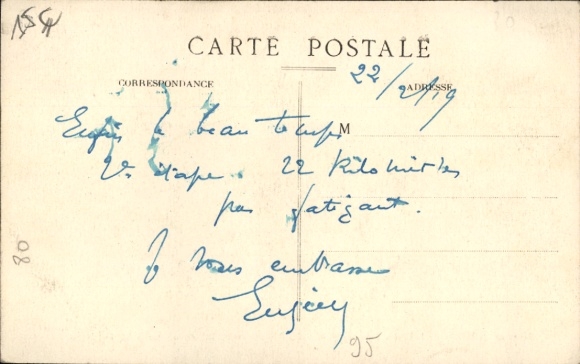 CARTE POSTALE
22/2/19
CORRESPONDANCE
ADRESSE
Enfin le beau temps
M
2e étape. 22 Kilomètres
pas fatigant.
Je vous embrasse
80
95